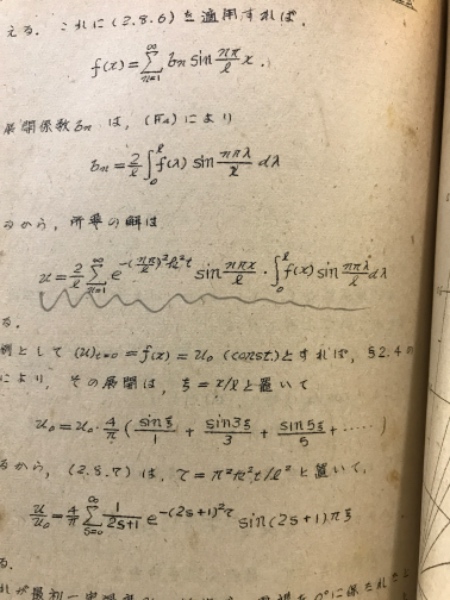 える. これに(2.8.6)を適用すれば,
f(x)=∑_{n=1}^{∞} bn sin nπ/ℓ x.
展開係数bnは, (F4)により
bn=2/ℓ ∫_0^ℓ f(λ) sin nπλ/ℓ dλ
るから, 所要の解は
u=2/ℓ ∑_{n=1}^{∞} e^{-(nπ/ℓ)²k²t} sin nπx/ℓ · ∫_0^ℓ f(x) sin nπλ/ℓ dλ
る.
例として (u)t=0 = f(x) = u₀ (const.)とすれば, §2.4の
により, その展開は, ξ=x/ℓ と置いて
u₀=u₀·4/π ( sinξ/1 + sin3ξ/3 + sin5ξ/5 + ····· )
るから, (2.8.7)は, τ=π²k²t/ℓ² と置いて,
u/u₀=4/π ∑_{s=0}^{∞} 1/(2s+1) e^{-(2s+1)²τ} sin(2s+1)πξ
る.
れが最初一定温度